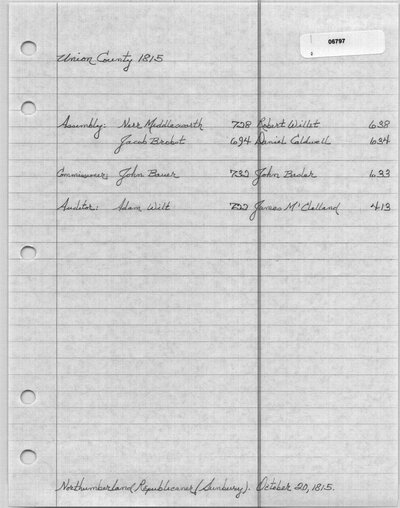 06797
Union County 1815
Assembly: Nerr Middleswarth 728 Robert Willet 638
Jacob Brobst 694 Daniel Caldwell 634
Commissioner: John Bower 732 John Baslar 633
Auditor: Adam Wilt 722 James McClelland 413
Northumberland Republicaner (Sunbury). October 20, 1815.